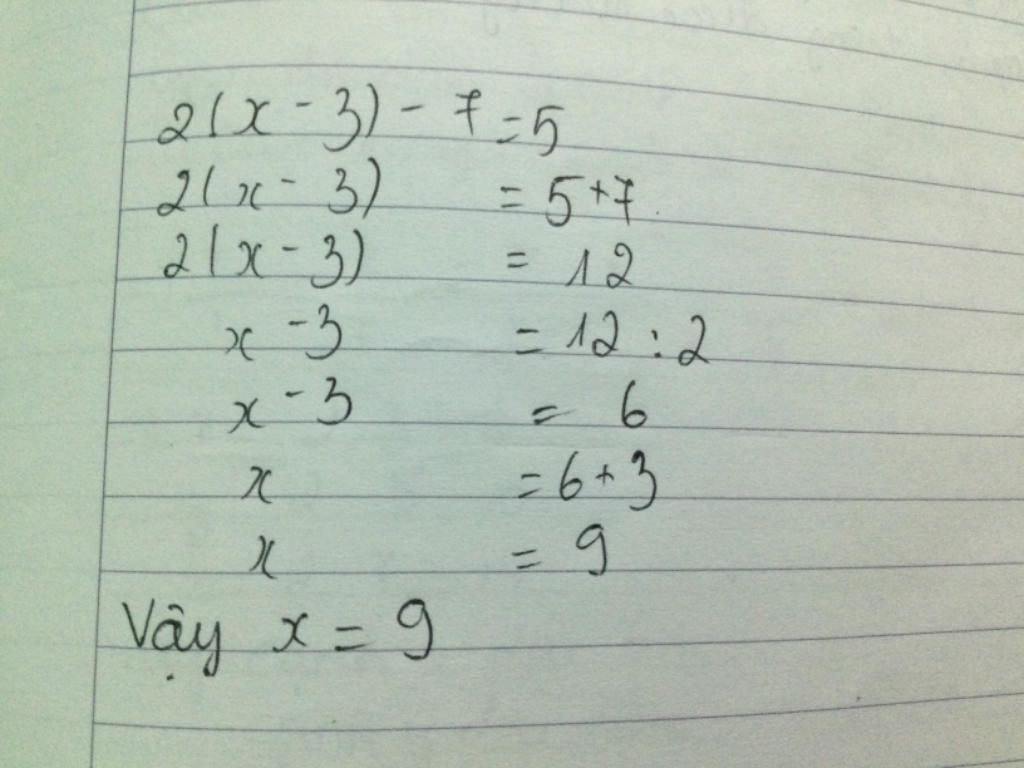 2(x - 3) - 7 = 5
2(x - 3) = 5 + 7
2(x - 3) = 12
x - 3 = 12 : 2
x - 3 = 6
x = 6 + 3
x = 9
Vậy x = 9